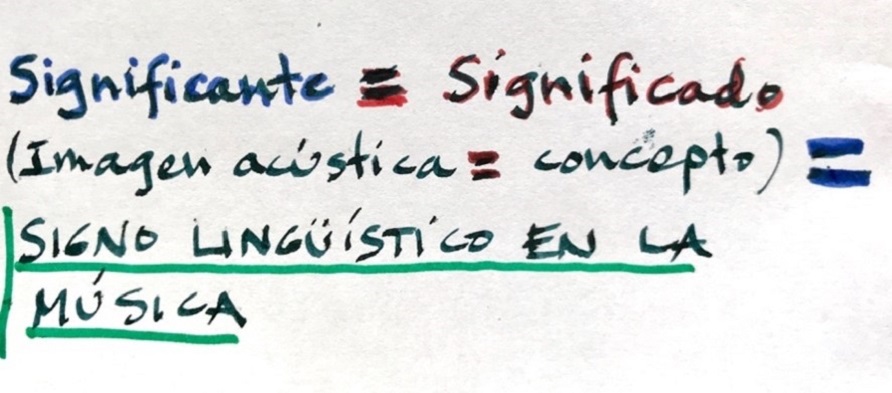 Significante = Significado
(Imagen acústica = concepto) =
SIGNO LINGÜÍSTICO EN LA
MÚSICA